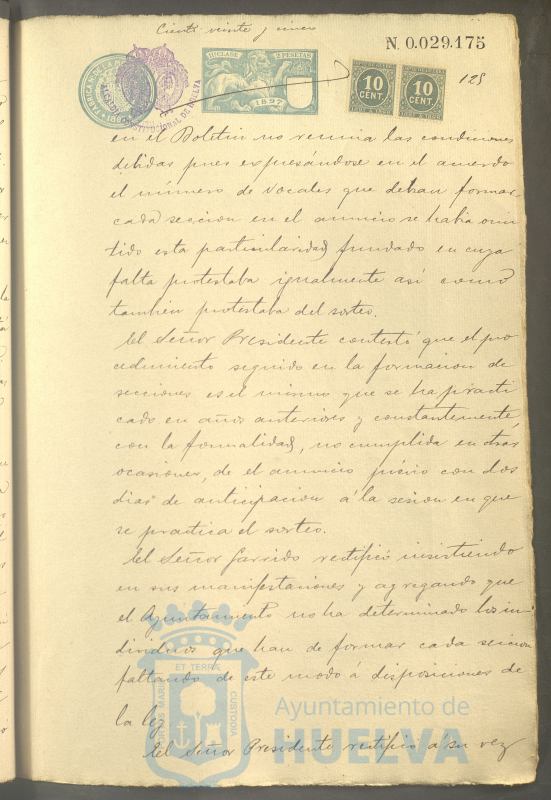 Ciento veinte y cinco
N. 0.029.175
11ª CLASE 2 PESETAS
1897
10 CENT.
10 CENT.
125
en el Boletin no reunia las condiciones
debidas pues expresándose en el acuerdo
el número de Vocales que deban formar
cada seccion en el anuncio se habia omi
tido esta particularidad fundado en cuya
falta protestaba igualmente así como
tambien protestaba del sorteo.
El Señor Presidente contestó que el pro
cedimiento seguido en la formacion de
secciones es el mismo que se ha practi
cado en años anteriores y constantemente
con la formalidad, no cumplida en otras
ocasiones, de el anuncio prévio con dos
dias de anticipacion á la sesion en que
se practica el sorteo.
El Señor Garrido rectificó insistiendo
en sus manifestaciones y agregando que
el Ayuntamiento no ha determinado los in
dividuos que han de formar cada seccion
faltando de este modo á disposiciones de
la ley
El Señor Presidente rectificó á su vez
ET TERRÆ
PORTUS MARIS
CUSTODIA
Ayuntamiento de
HUELVA